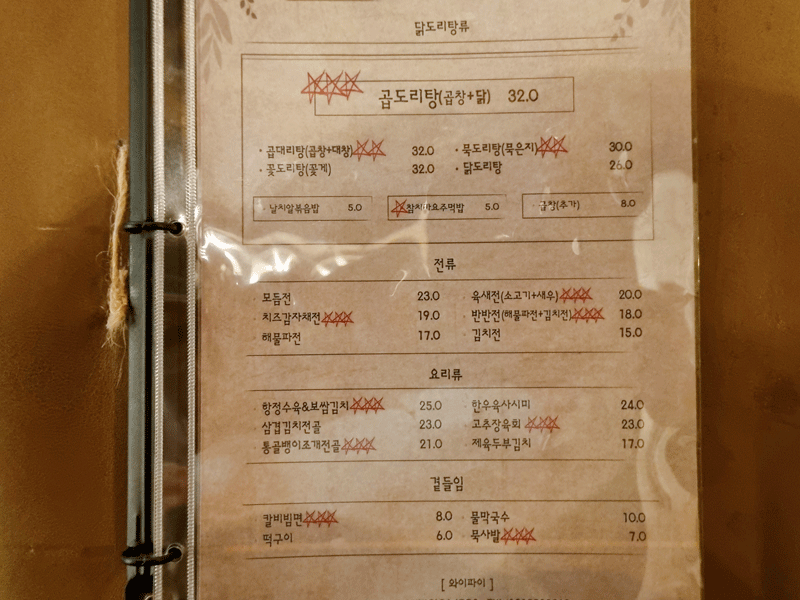 닭도리탕류
곱도리탕(곱창+닭) 32.0
· 곱대리탕(곱창+대창) 32.0 · 묵도리탕(묵은지) 30.0
· 꽃도리탕(꽃게) 32.0 · 닭도리탕 26.0
· 날치알볶음밥 5.0 참치마요주먹밥 5.0 · 곱창(추가) 8.0
전류
· 모듬전 23.0 · 육새전(소고기+새우) 20.0
· 치즈감자채전 19.0 · 반반전(해물파전+김치전) 18.0
· 해물파전 17.0 · 김치전 15.0
요리류
· 항정수육&보쌈김치 25.0 · 한우육사시미 24.0
· 삼겹김치전골 23.0 · 고추장육회 23.0
· 통골뱅이조개전골 21.0 · 제육두부김치 17.0
곁들임
· 칼비빔면 8.0 · 물막국수 10.0
· 떡구이 6.0 · 묵사발 7.0
[ 와이파이 ]